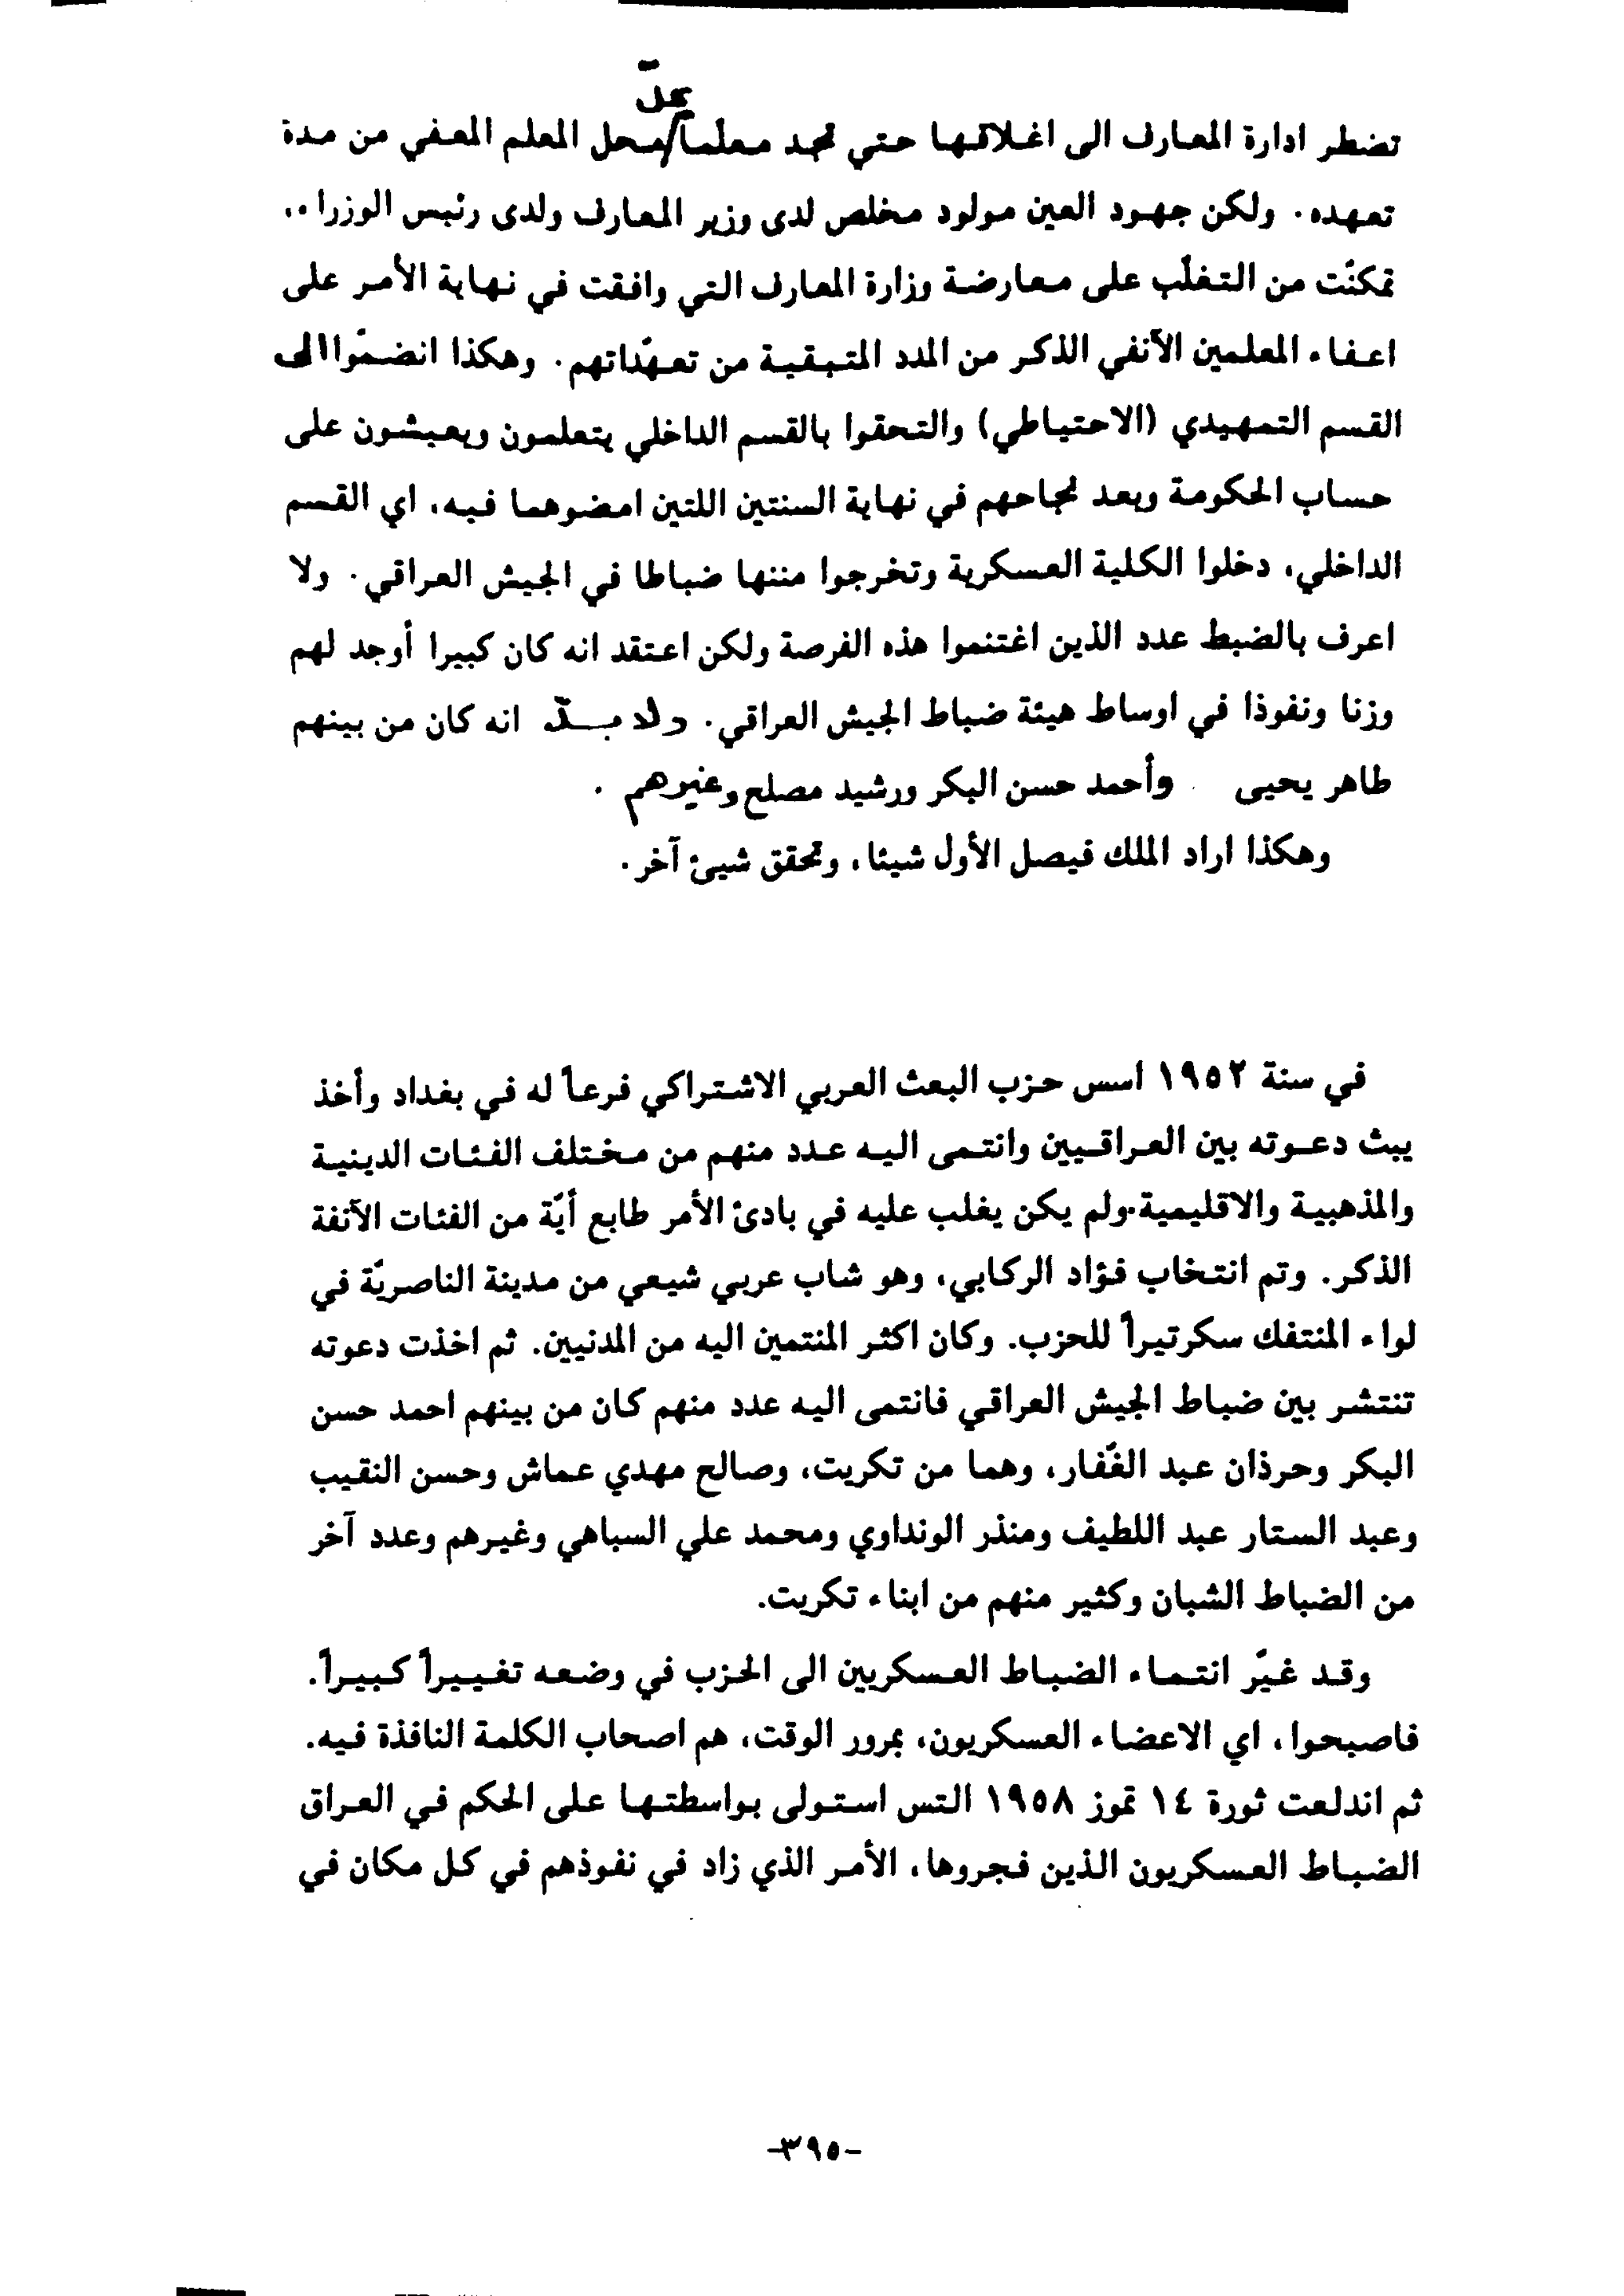 يحلّ
تضطر ادارة المعارف الى اغلاقها حتي تجد معلماً/محل المعلم المعفي من مدة
تعهده. ولكن جهود العين مولود مخلص لدى وزير المعارف ولدى رئيس الوزراء،
تمكنّت من التغلّب على معارضة وزارة المعارف التي وافقت في نهاية الأمر على
اعفاء المعلمين الآنفي الذكر من المدد المتبقية من تعهّداتهم. وهكذا انضمّوا الى
القسم التمهيدي (الاحتياطي) والتحقوا بالقسم الداخلي يتعلمون ويعيشون على
حساب الحكومة وبعد نجاحهم في نهاية السنتين اللتين امضوهما فيه، اي القسم
الداخلي، دخلوا الكلية العسكرية وتخرجوا مننها ضباطا في الجيش العراقي. ولا
اعرف بالضبط عدد الذين اغتنموا هذه الفرصة ولكن اعتقد انه كان كبيرا أوجد لهم
وزنا ونفوذا في اوساط هيئة ضباط الجيش العراقي. ولا بدّ انه كان من بينهم
طاهر يحيى وأحمد حسن البكر ورشيد مصلح وغيرهم .
وهكذا اراد الملك فيصل الأول شيئا، وتحقق شيئ آخر.
في سنة ١٩٥٢ اسس حزب البعث العربي الاشتراكي فرعاً له في بغداد وأخذ
يبث دعوته بين العراقيين وانتمى اليه عدد منهم من مختلف الفئات الدينية
والمذهبية والاقليمية.ولم يكن يغلب عليه في بادئ الأمر طابع أيّة من الفئات الآنفة
الذكر. وتم انتخاب فؤاد الركابي، وهو شاب عربي شيعي من مدينة الناصريّة في
لواء المنتفك سكرتيراً للحزب. وكان اكثر المنتمين اليه من المدنيين. ثم اخذت دعوته
تنتشر بين ضباط الجيش العراقي فانتمى اليه عدد منهم كان من بينهم احمد حسن
البكر وحرذان عبد الغّفار، وهما من تكريت، وصالح مهدي عماش وحسن النقيب
وعبد الستار عبد اللطيف ومنذر الونداوي ومحمد علي السباهي وغيرهم وعدد آخر
من الضباط الشبان وكثير منهم من ابناء تكريت.
وقد غيّر انتماء الضباط العسكريين الى الحزب في وضعه تغييراً كبيراً.
فاصبحوا، اي الاعضاء العسكريون، بمرور الوقت، هم اصحاب الكلمة النافذة فيه.
ثم اندلعت ثورة ١٤ تموز ١٩٥٨ التس استولى بواسطتها على الحكم في العراق
الضباط العسكريون الذين فجروها، الأمر الذي زاد في نفوذهم في كل مكان في
-٣٩٥-